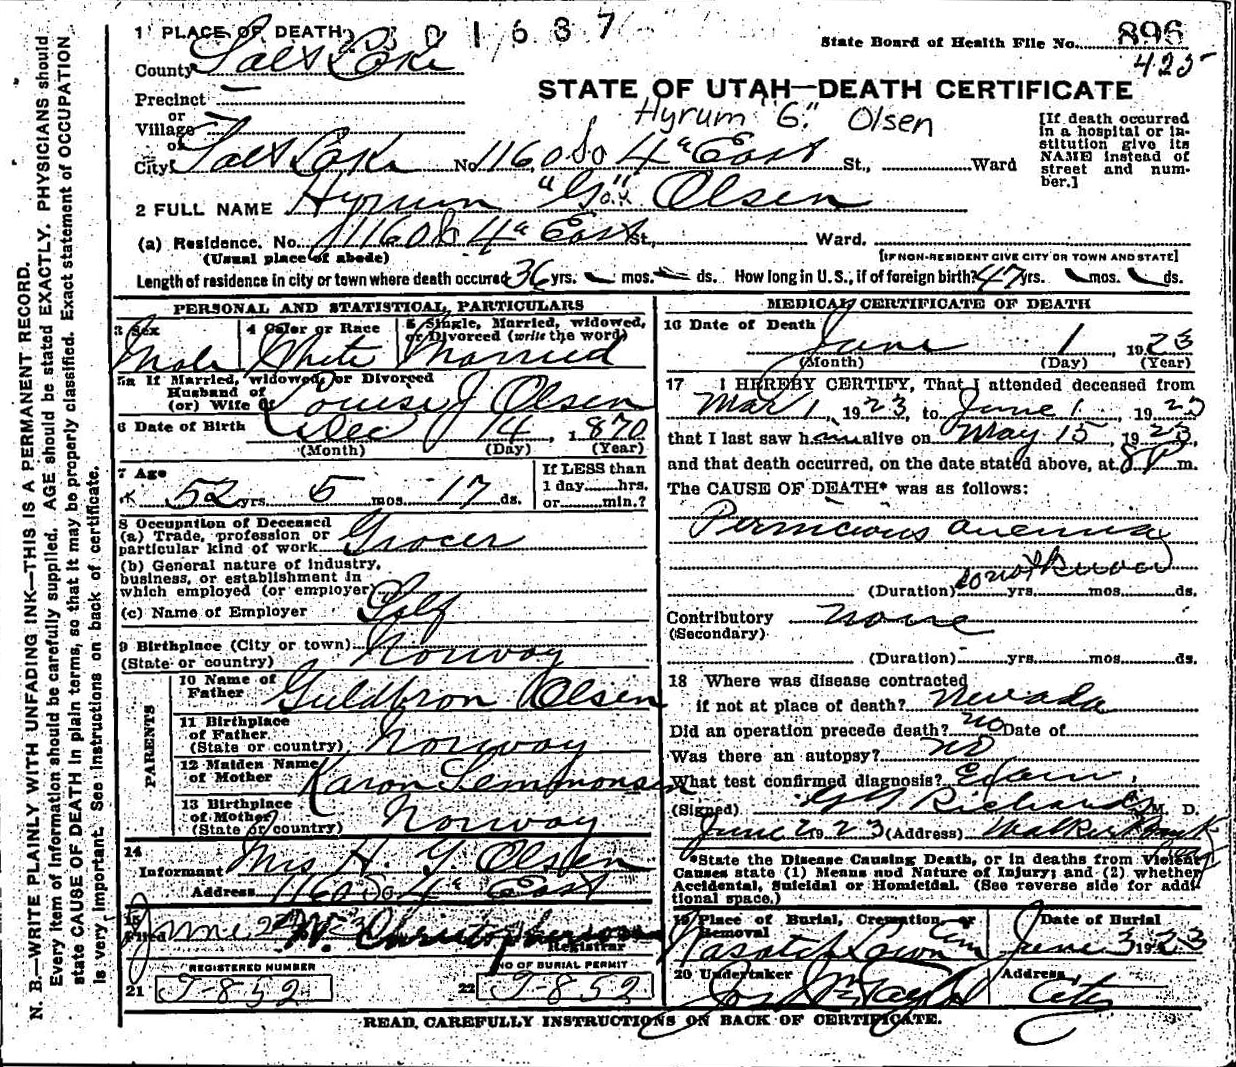 1 PLACE OF DEATH 2 3 0 1 6 3 7
State Board of Health File No. 896
425
County Salt Lake
STATE OF UTAH—DEATH CERTIFICATE
Precinct
or
Village
or
City Salt Lake No. 1160 So 4" East St., Ward
Hyrum "G." Olsen
[If death occurred in a hospital or institution give its NAME instead of street and number.]
2 FULL NAME Hyrum "G." Olsen
(a) Residence. No. 1160 So 4" East St., Ward.
(Usual place of abode)
[IF NON-RESIDENT GIVE CITY OR TOWN AND STATE]
Length of residence in city or town where death occured 36 yrs. mos. ds. How long in U.S., if of foreign birth? 47 yrs. mos. ds.
PERSONAL AND STATISTICAL PARTICULARS
3 Sex Male
4 Color or Race White
5 Single, Married, widowed, or Divorced (write the word) Married
5a If Married, widowed, or Divorced
Husband of
(or) Wife of Louise J Olsen
6 Date of Birth Dec 14, 1870
(Month) (Day) (Year)
7 Age 52 yrs 5 mos 17 ds.
If LESS than
1 day hrs.
or min.?
8 Occupation of Deceased
(a) Trade, profession or
particular kind of work Grocer
(b) General nature of industry,
business, or establishment in
which employed (or employer)
(c) Name of Employer Self
9 Birthplace (City or town)
(State or country) Norway
PARENTS
10 Name of
Father Guldbron Olsen
11 Birthplace
of Father
(State or country) Norway
12 Maiden Name
of Mother Karon Semmonsen
13 Birthplace
of Mother
(State or country) Norway
14
Informant Mrs H. G Olsen
Address 1160 So 4" East
15
Filed June 2 1923 W. Christopherson
Registrar
REGISTERED NUMBER
21 J-852
NO OF BURIAL PERMIT
22 J-852
MEDICAL CERTIFICATE OF DEATH
16 Date of Death June 1, 1923
(Month) (Day) (Year)
17 I HEREBY CERTIFY, That I attended deceased from
Mar 1, 1923 to June 1, 1923
that I last saw him alive on May 15, 1923,
and that death occurred, on the date stated above, at 8 P m.
The CAUSE OF DEATH* was as follows:
Pernicious anemia
(Duration) yrs. mos. ds.
Contributory none
(Secondary)
(Duration) yrs. mos. ds.
18 Where was disease contracted
if not at place of death? Nevada
Did an operation precede death? no Date of
Was there an autopsy? no
What test confirmed diagnosis? Exam
(Signed) Richards M. D.
June 2 1923 (Address) Walker Bank
*State the Disease Causing Death, or in deaths from Violent
Causes state (1) Means and Nature of Injury; and (2) whether
Accidental, Suicidal or Homicidal. (See reverse side for addi-
tional space.)
19 Place of Burial, Cremation or
Removal
Wasatch Lawn Cem
Date of Burial
June 3 1923
20 Undertaker
Jos Wm Taylor
Address
City
READ CAREFULLY INSTRUCTIONS ON BACK OF CERTIFICATE.
N. B.—WRITE PLAINLY WITH UNFADING INK—THIS IS A PERMANENT RECORD.
Every item of information should be carefully supplied. AGE should be stated EXACTLY. PHYSICIANS should
state CAUSE OF DEATH in plain terms, so that it may be properly classified. Exact statement of OCCUPATION
is very important. See instructions on back of certificate.